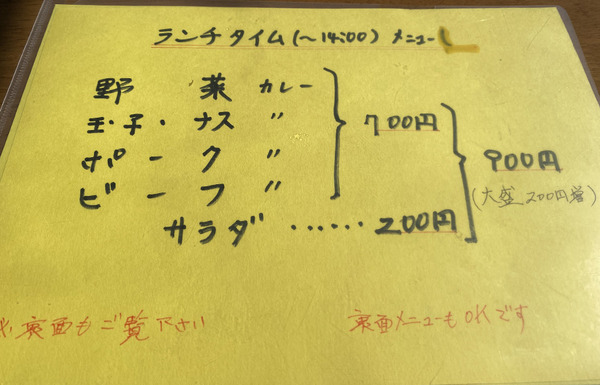 ランチタイム(〜14:00) メニュー
野菜カレー
玉子・ナス 〃
ポーク 〃
ビーフ 〃
700円
サラダ ‥‥‥ 200円
900円
(大盛200円増)
※裏面もご覧下さい
裏面メニューもOKです